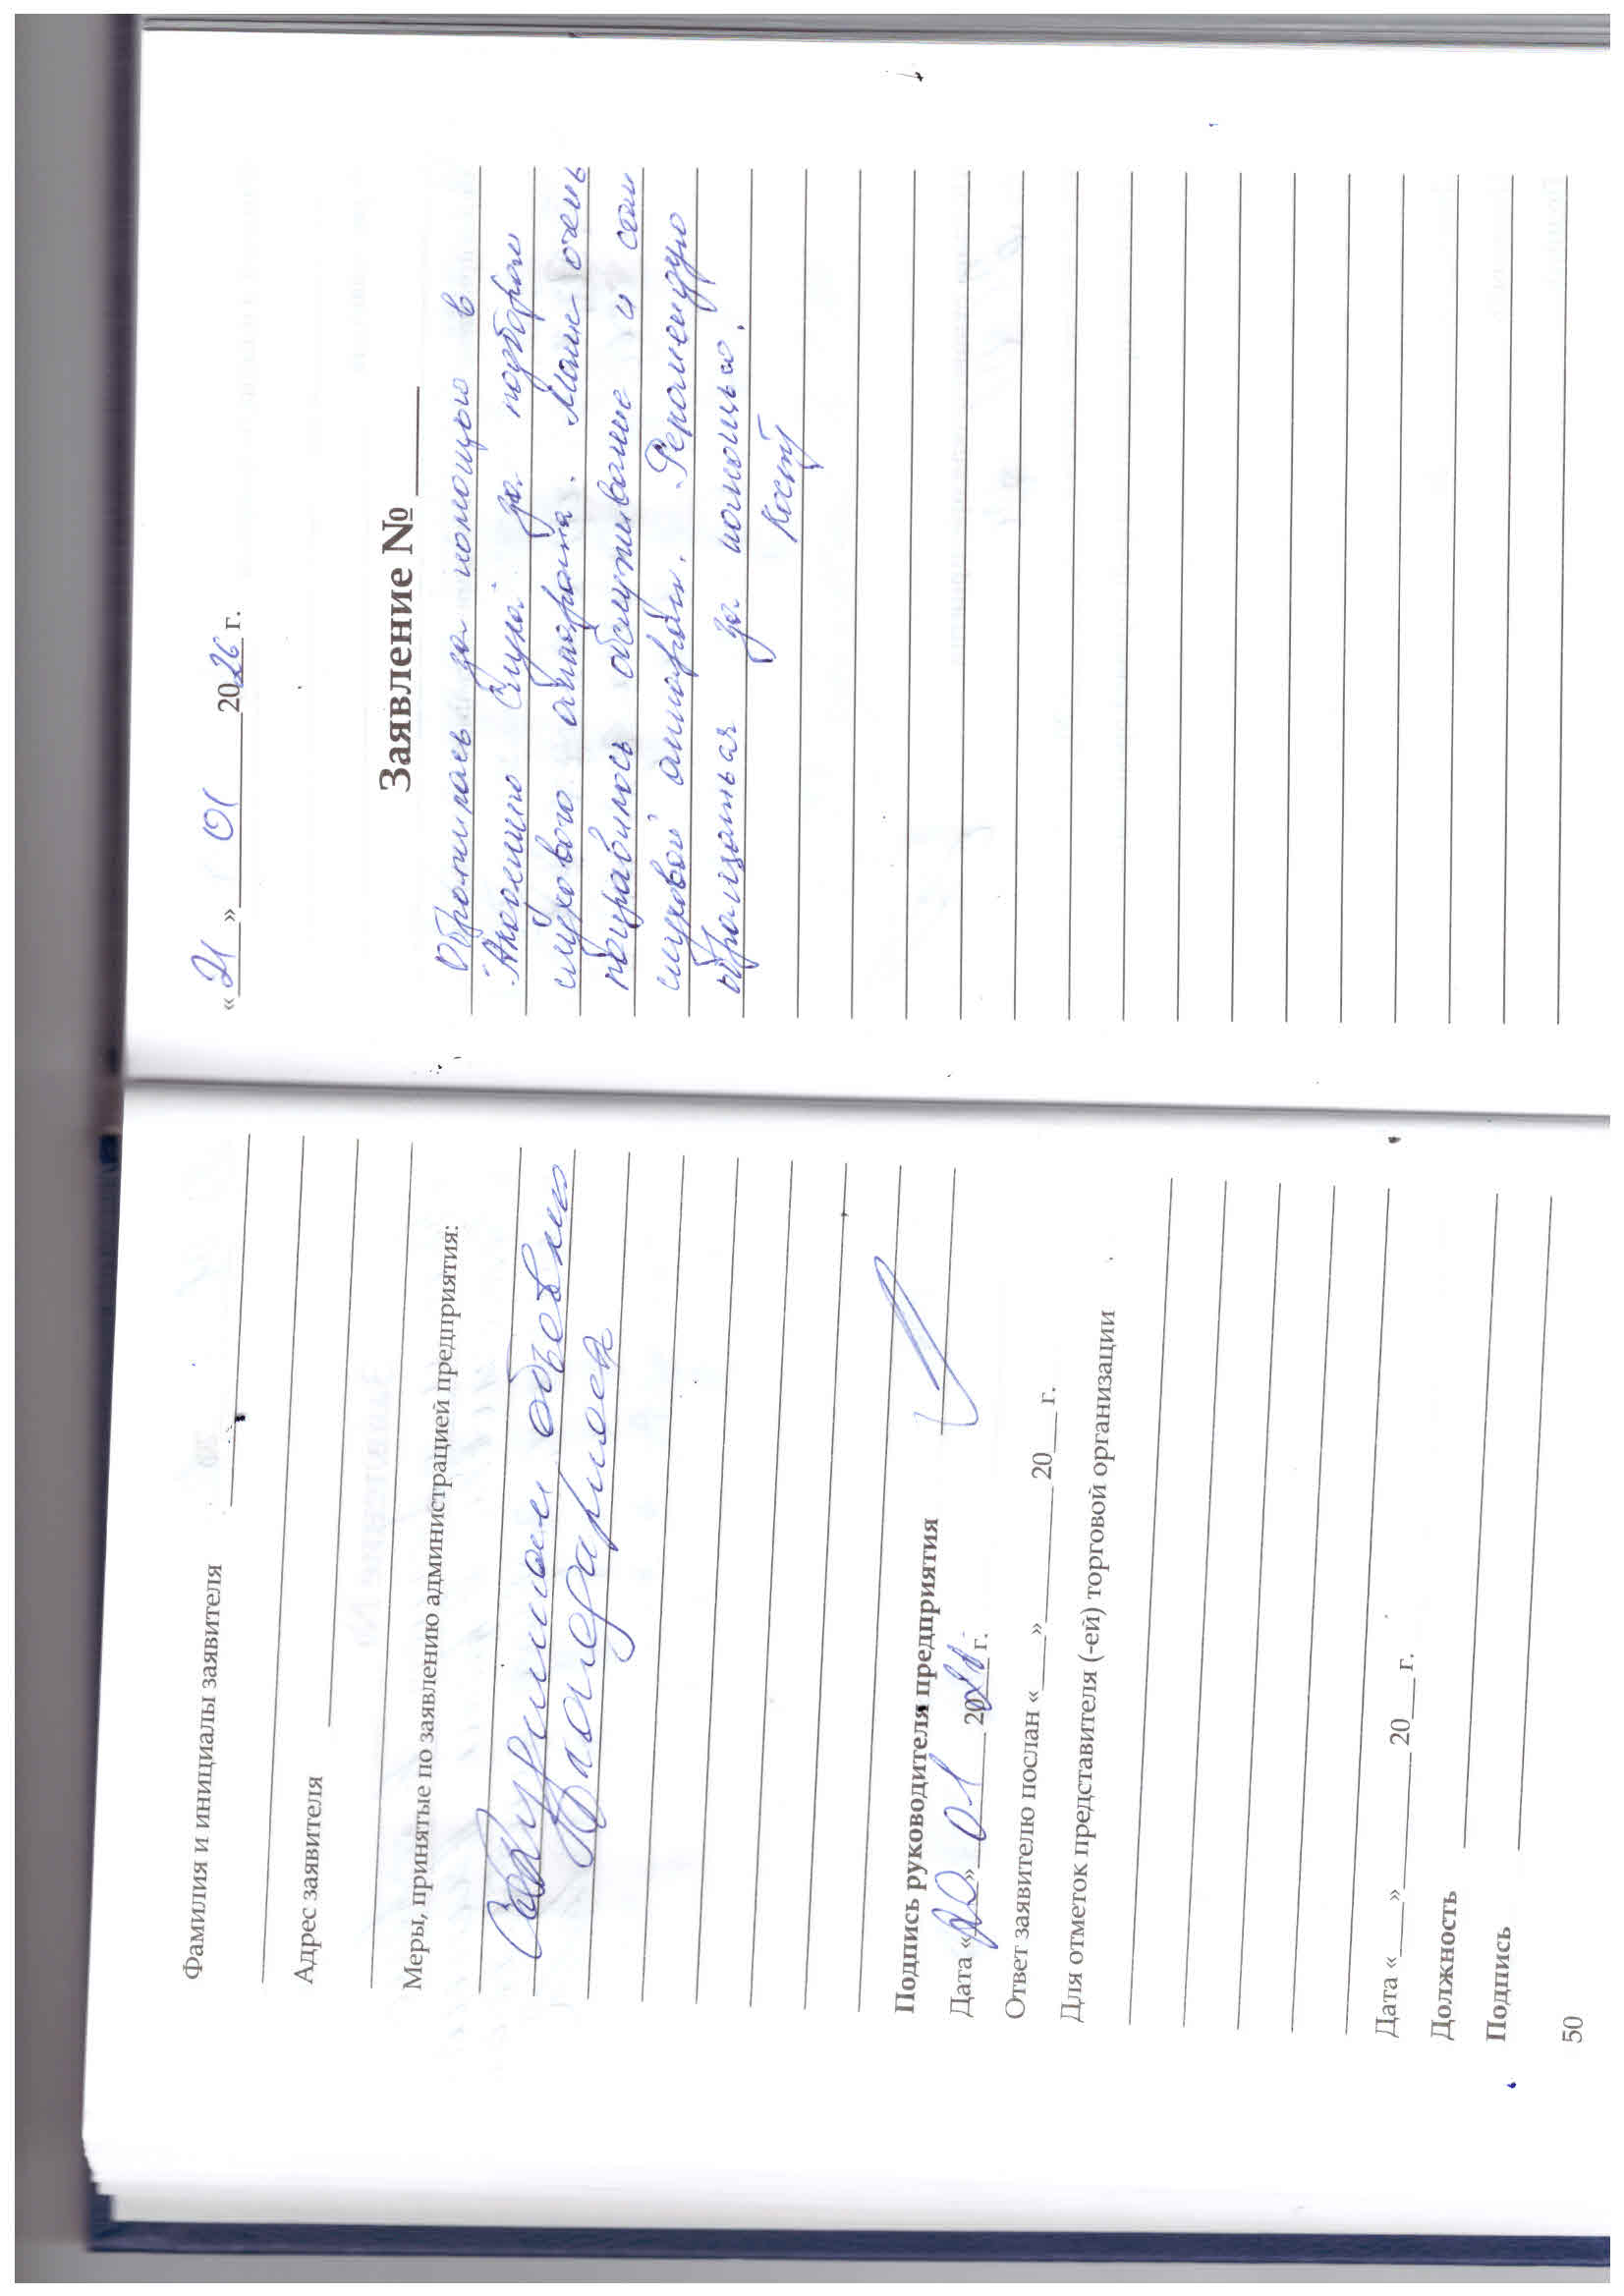 Фамилия и инициалы заявителя
Адрес заявителя
Меры, принятые по заявлению администрацией предприятия:
Сотрудникам объявлена
благодарность
Подпись руководителя предприятия
Дата «22» 01 2026 г.
Ответ заявителю послан «___» ______ 20___ г.
Для отметок представителя (-ей) торговой организации
Дата «___» ______ 20___ г.
Должность
Подпись
50
«21» 01 2026 г.
Заявление № ______
Обратилась за помощью в
"Академию Слуха" за подбором
слухового аппарата. Маме очень
понравилось обслуживание и сам
слуховой аппарат. Рекомендую
обращаться за помощью.